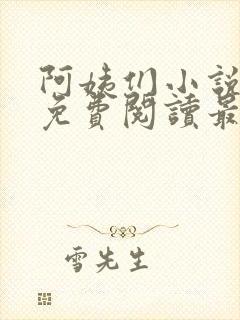 阿姨们小說
免費閱讀最
雪先生